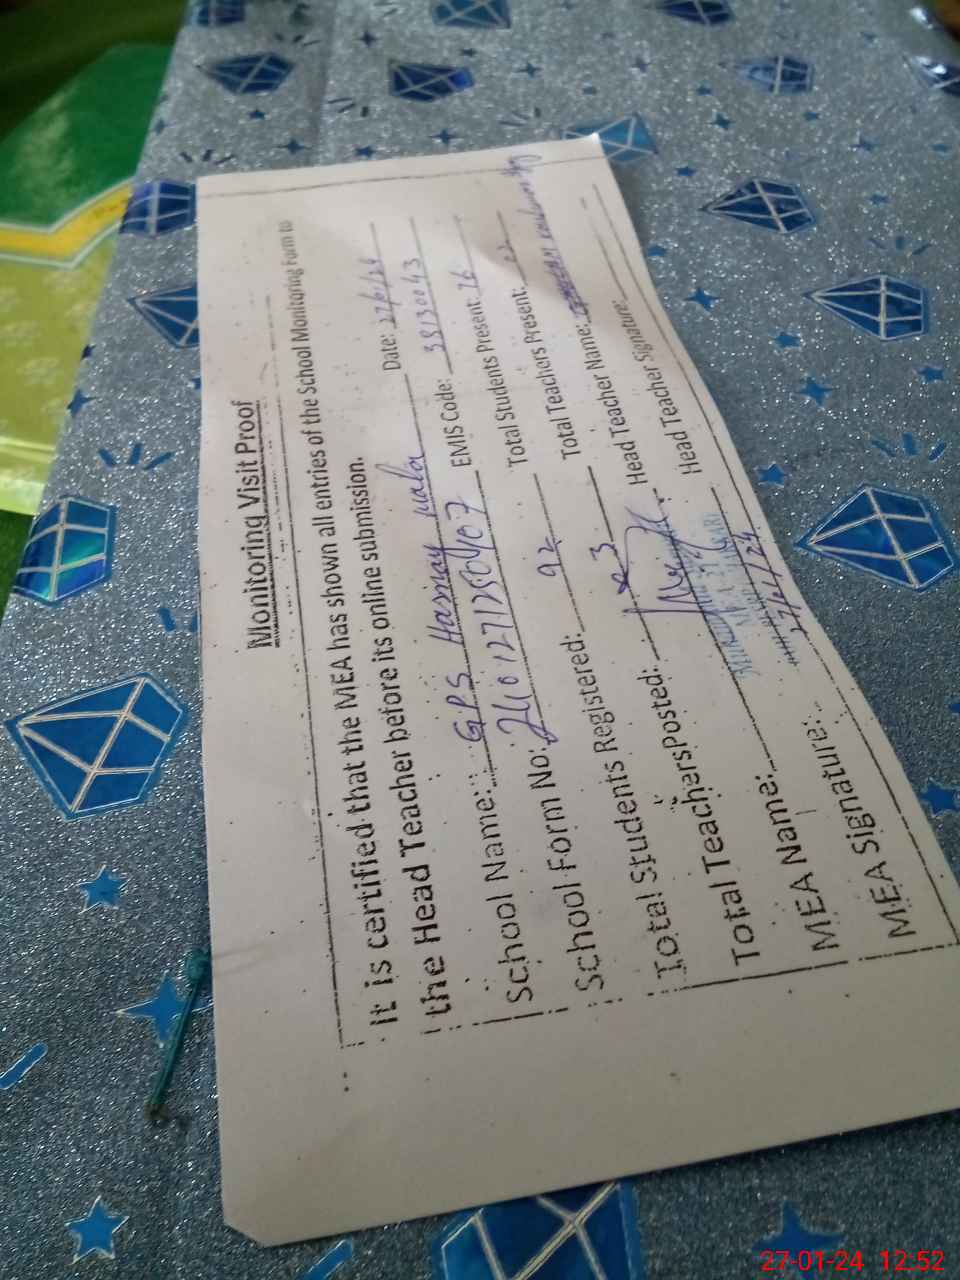 Monitoring Visit Proof
It is certified that the MEA has shown all entries of the School Monitoring Form to
the Head Teacher before its online submission.
Date: 27/1/24
School Name: GPS Hasnay wala
EMIS Code: 38130043
School Form No: 2401271250407
Total Students Present: 76
Total Students Registered: 92
Total Teachers Present:
Total Teachers Posted: 3
Head Teacher Name:
MEA Name:
Head Teacher Signature:
MEA Signature:
27/01/24
27-01-24 12:52